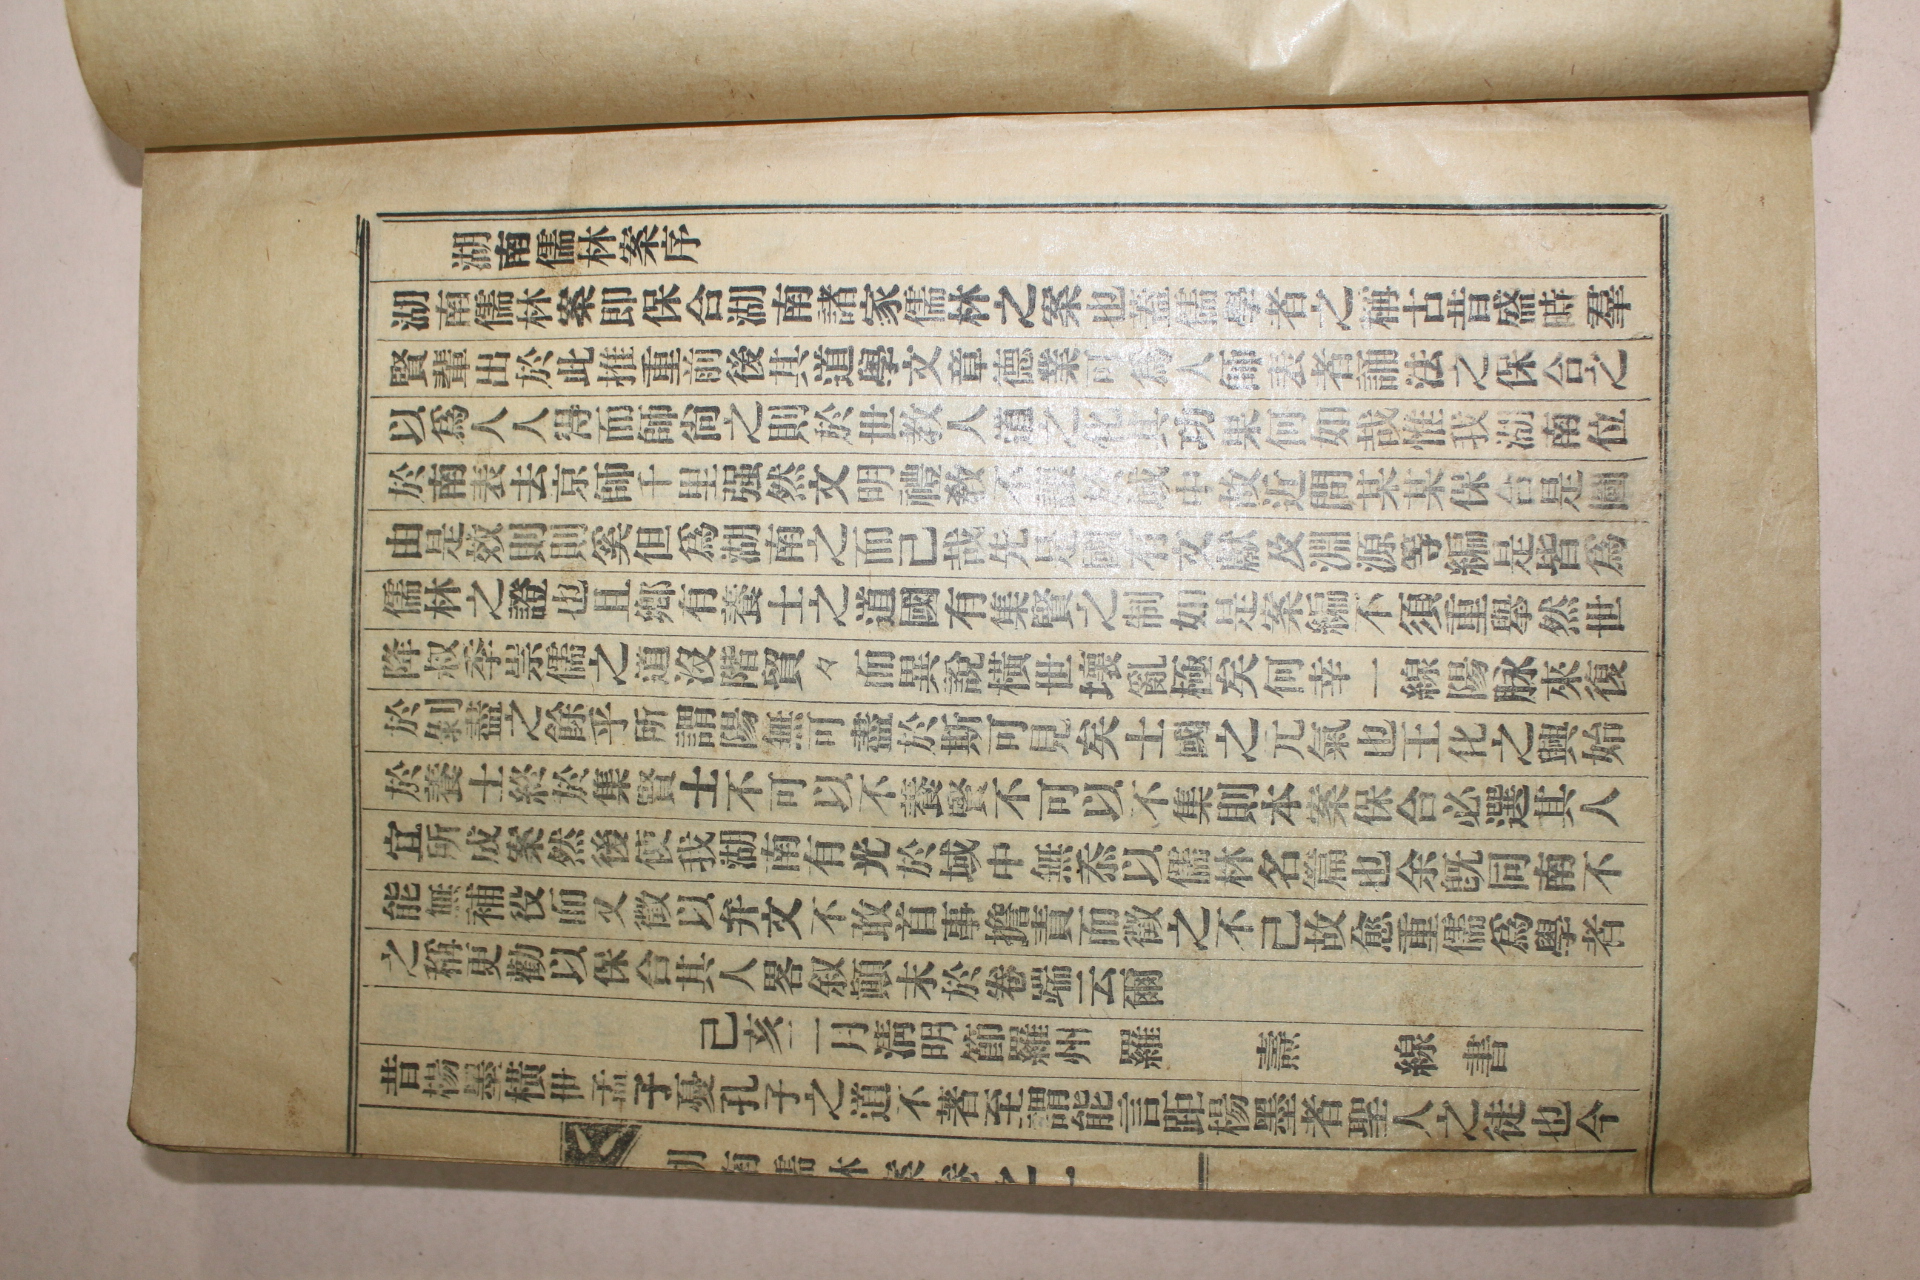 湖南儒林案序
湖南儒林案即保合湖南諸家儒林之案也蓋儒學者之稱古昔盛時羣
賢輩出於此推重前後其道學文章德業可爲人師表者誦法之保合之
以爲人人得而師尙之則於世敎人道之化其功果何如哉惟我湖南位
於南表去京師千里强然文明禮敎不讓於域中故近間某某保合是圖
由是效則則奚但爲湖南之而已哉先是國有文獻及淵源等編是皆爲
儒林之證也且鄕有養士之道國有集賢之制如是案編不須重擧然世
降叔季崇儒之道沒階貿々而異說橫世壞亂極矣何幸一線陽脉來復
於剝盡之餘乎所謂陽無可盡於斯可見矣士國之元氣也王化之興始
於養士終於集賢士不可以不養賢不可以不集則本案保合必選其人
宜所成案然後使我湖南有光於域中無忝以儒林名篇也余旣同南不
能無補役而又徵以弁文不敢首事擔責而徵之不已故愈重儒爲學者
之稱更勸以保合其人畧叙顚末於卷端云爾
己亥二月淸明節羅州 羅 燾 線 書
昔楊墨橫世孟子憂孔子之道不著至謂能言距楊墨者聖人之徒也今
湖南儒林案